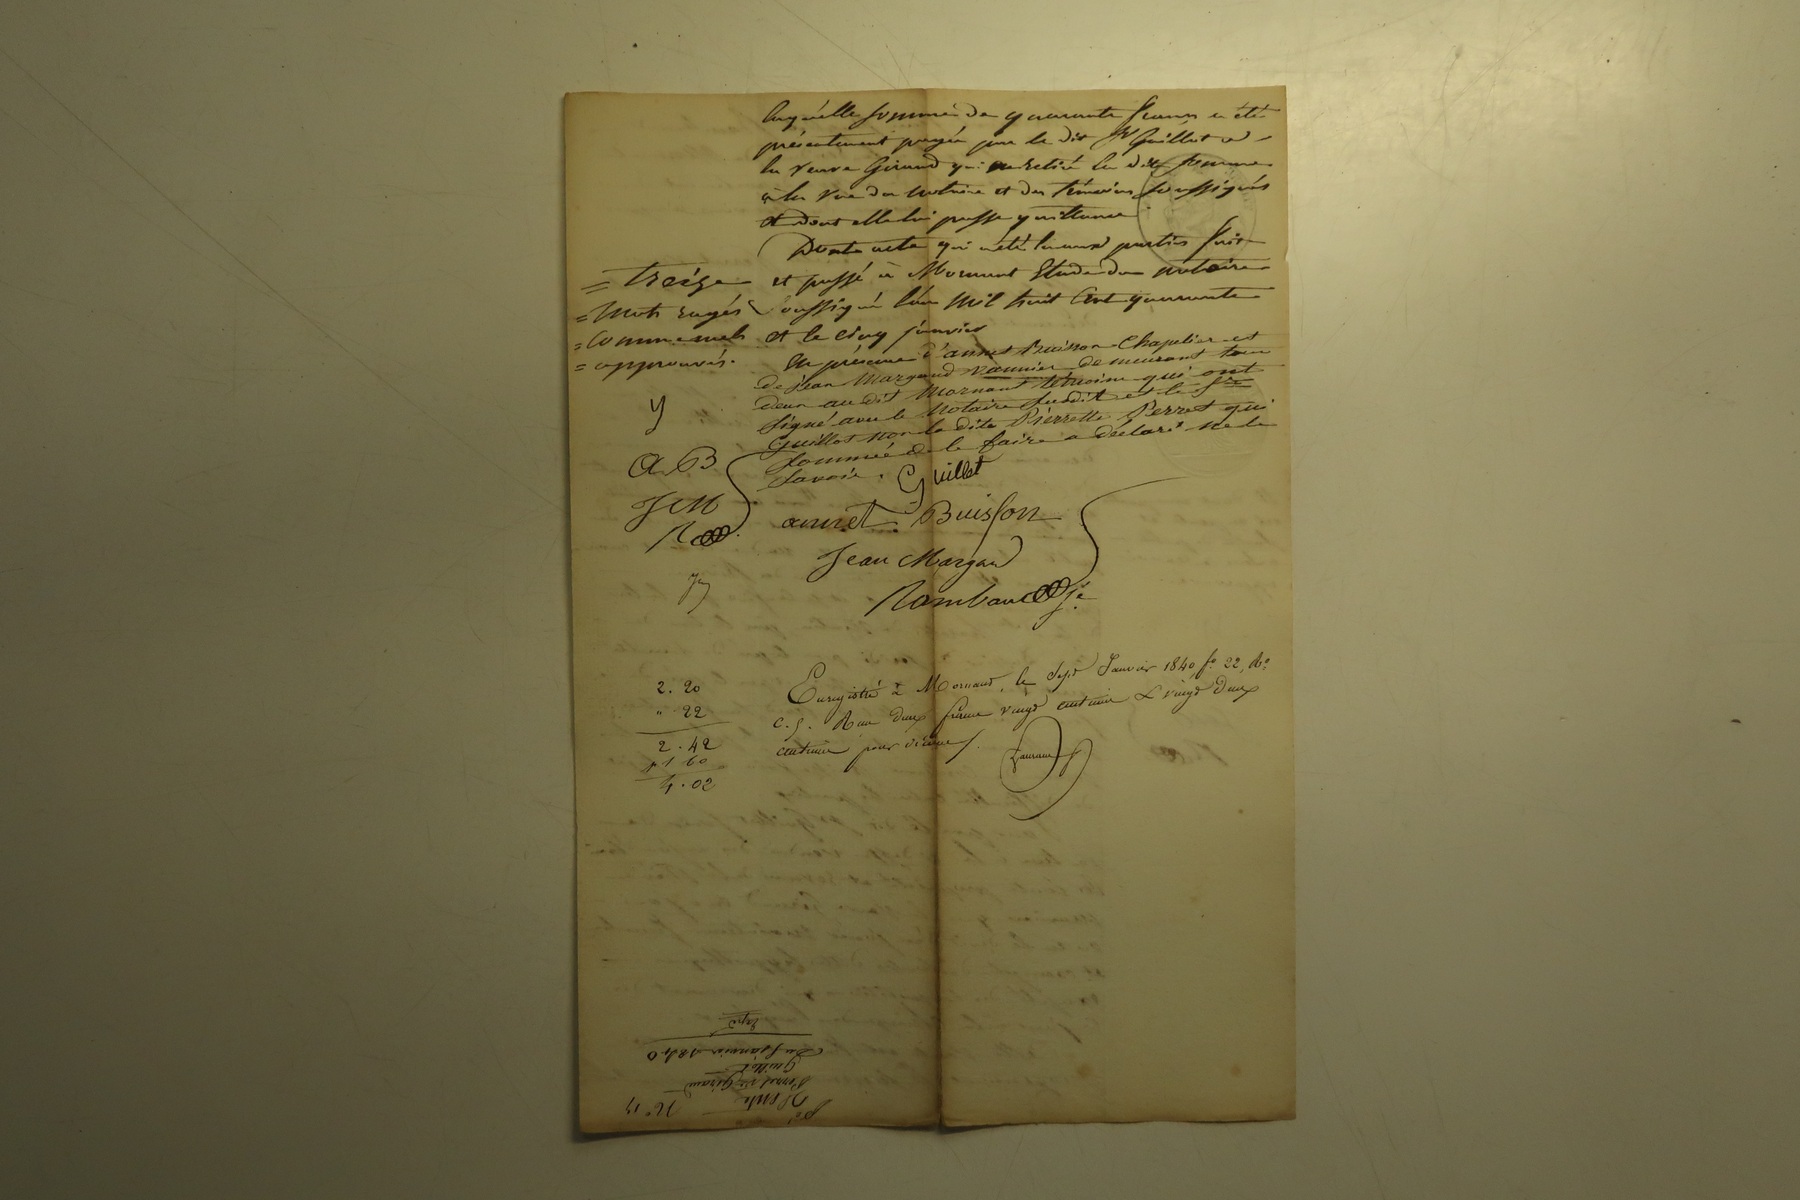 laquelle somme de quarante francs a été
présentement payée par le dit Sr Guillot a
la veuve Giraud qui a retiré la dite somme
à la vue du notaire et des témoins soussignés
et dont elle lui passe quittance
Dont acte qui a été lu aux parties fait
et passé à Mornant Etude du notaire
soussigné l'an mil huit cent quarante
et le cinq janvier
En présence d'annet Buisson Chapelier et
de jean Margand vannier demeurant tous
deux au dit Mornant témoins qui ont
signé avec le Notaire susdit et le Sr
Guillot non la dite Pierrette Perret qui
sommée de le faire a déclaré ne le
savoir.
= treize
= Mots rayés
= Comme nuls
= approuvés.
y
A. B
J M
R
Guillot
annet Buisson
Jean Margand
Rambaud
Enregistré à Mornant, le sept Janvier 1840, fo 22, Ro
c. 5. Reçu deux francs vingt centimes & vingt deux
centimes pour dixième
2. 20
" 22
2. 42
1 60
4. 02
No 13
Vente
Perret ve Giraud
Guillot
Du 5 janvier 1840
Expé